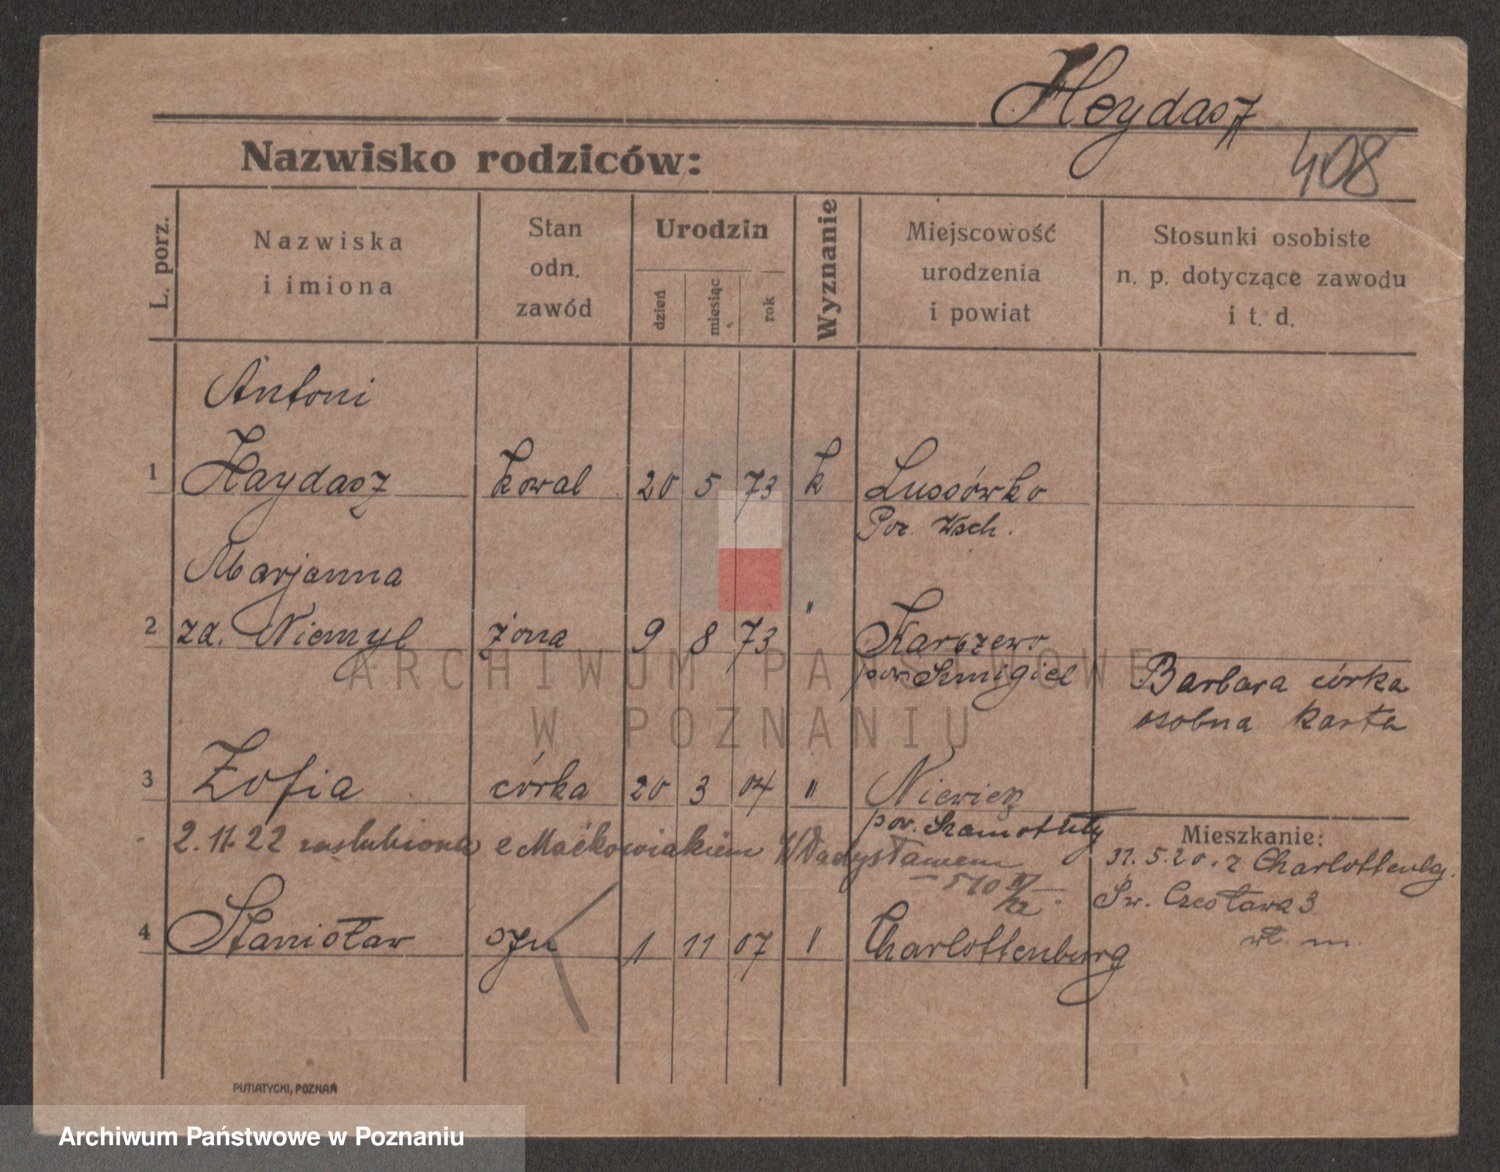 Heydasz
408
Nazwisko rodziców:
L. porz.
Nazwiska i imiona
Stan odn. zawód
Urodzin
dzień
miesiąc
rok
Wyznanie
Miejscowość urodzenia i powiat
Stosunki osobiste n. p. dotyczące zawodu i t. d.
Antoni
1 Haydasz kowal 20 5 73 k Lussówko
Poz. Wsch.
Marjanna
2 zd. Niemyl żona 9 8 73 " Karczewo
pow. Szmigiel
Barbara córka
osobna karta
3 Zofia córka 20 3 04 "
pow. Szamotuły
Mieszkanie:
2.11.22 zaślubiona z Maćkowiakiem Władysławem
31.5.20. z Charlottenbg.
Św. Czesława 3
wł. m.
4 Stanisław syn 1 11 07 " Charlottenburg
PUTIATYCKI, POZNAŃ
ARCHIWUM PAŃSTWOWE
W POZNANIU
Archiwum Państwowe w Poznaniu